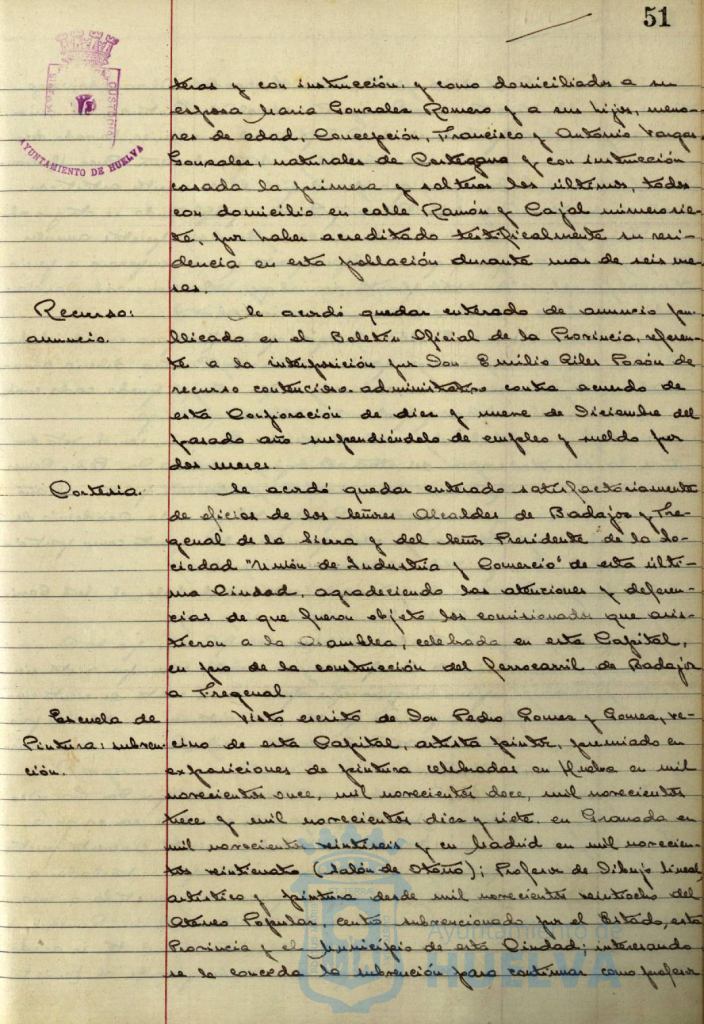 51
AYUNTAMIENTO DE HUELVA
teras y con instrucción, y como domiciliados a su
esposa María Gonzales Romero y a sus hijos, meno-
res de edad, Concepción, Francisco y Antonio Vargas
Gonzales, naturales de Cortegana y con instrucción
casada la primera y solteros los últimos, todos
con domicilio en calle Ramón y Cajal número sie-
te, por haber acreditado testificalmente su resi-
dencia en esta población durante mas de seis me-
ses.
Recurso:
anuncio.
Se acordó quedar enterado de anuncio pu-
blicado en el Boletín Oficial de la Provincia, referen-
te a la interposición por Don Emilio Giles de
recurso contencioso-administrativo contra acuerdo de
esta Corporación de diez y nueve de Diciembre del
pasado año suspendiéndolo de empleo y sueldo por
dos meses.
Cortesia.
Se acordó quedar enterado satisfactoriamente
de oficios de los Señores Alcaldes de Badajoz y Fre-
genal de la Sierra y del Señor Presidente de la So-
ciedad "Unión de Industria y Comercio" de esta últi-
ma Ciudad, agradeciendo las atenciones y deferen-
cias de que fueron objeto los comisionados que asis-
tieron a la Asamblea, celebrada en esta Capital,
en pro de la construcción del ferrocarril de Badajoz
a Fregenal.
Escuela de
Pintura: subven-
ción.
Visto escrito de Don Pedro Gomez y Gomez, ve-
cino de esta Capital, artista pintor, premiado en
exposiciones de pintura celebradas en Huelva en mil
novecientos once, mil novecientos doce, mil novecientos
trece y mil novecientos diez y siete, en Granada en
mil novecientos veintiseis y en Madrid en mil novecien-
tos veinticuatro (Salón de Otoño); Profesor de Dibujo lineal,
artístico y pintura desde mil novecientos veintiocho del
Ateneo Popular, centro subvencionado por el Estado, esta
Provincia y el Municipio de esta Ciudad; interesando
se le conceda la subvención para continuar como profesor
Ayuntamiento de
HUELVA